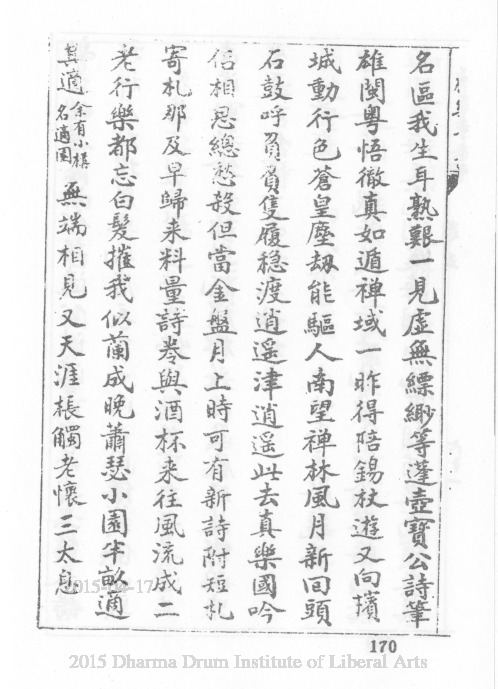 名區我生耳熟艱一見虛無縹緲等蓬壺寶公詩筆
雄閩粵悟徹真如遁禪域一昨得陪錫杖遊又向擯
城動行色蒼皇塵劫能驅人南望禪林風月新回頭
石鼓呼負負隻履穩渡逍遥津逍遥此去真樂國吟
侶相思總愁殺但當金盤月上時可有新詩附短札
寄札那及早歸来料量詩卷與酒杯来往風流成二
老行樂都忘白髮摧我似蘭成晚蕭瑟小園半畝適
其適
余有小樓
名適園
無端相見又天涯棖觸老懷三太息
170
2015 Dharma Drum Institute of Liberal Arts